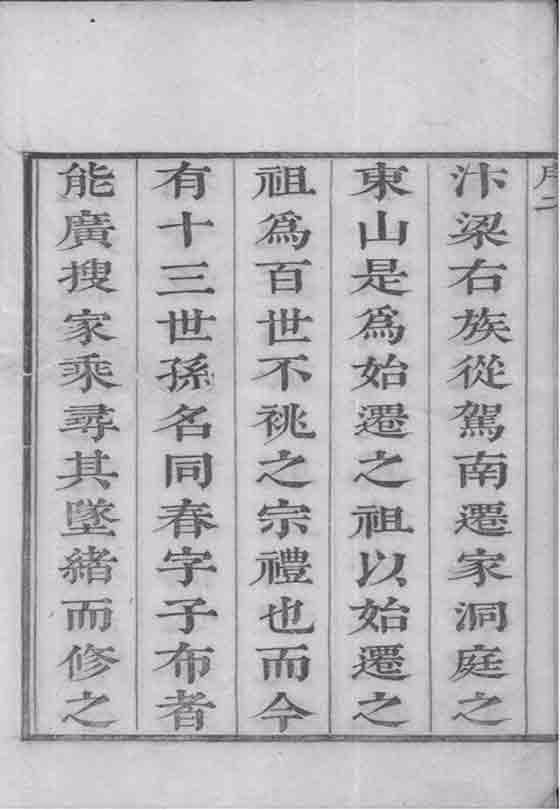 序二
汴梁右族從駕南遷家洞庭之
東山是爲始遷之祖以始遷之
祖爲百世不祧之宗禮也而今
有十三世孫名同春字子布者
能廣搜家乘尋其墜緒而修之